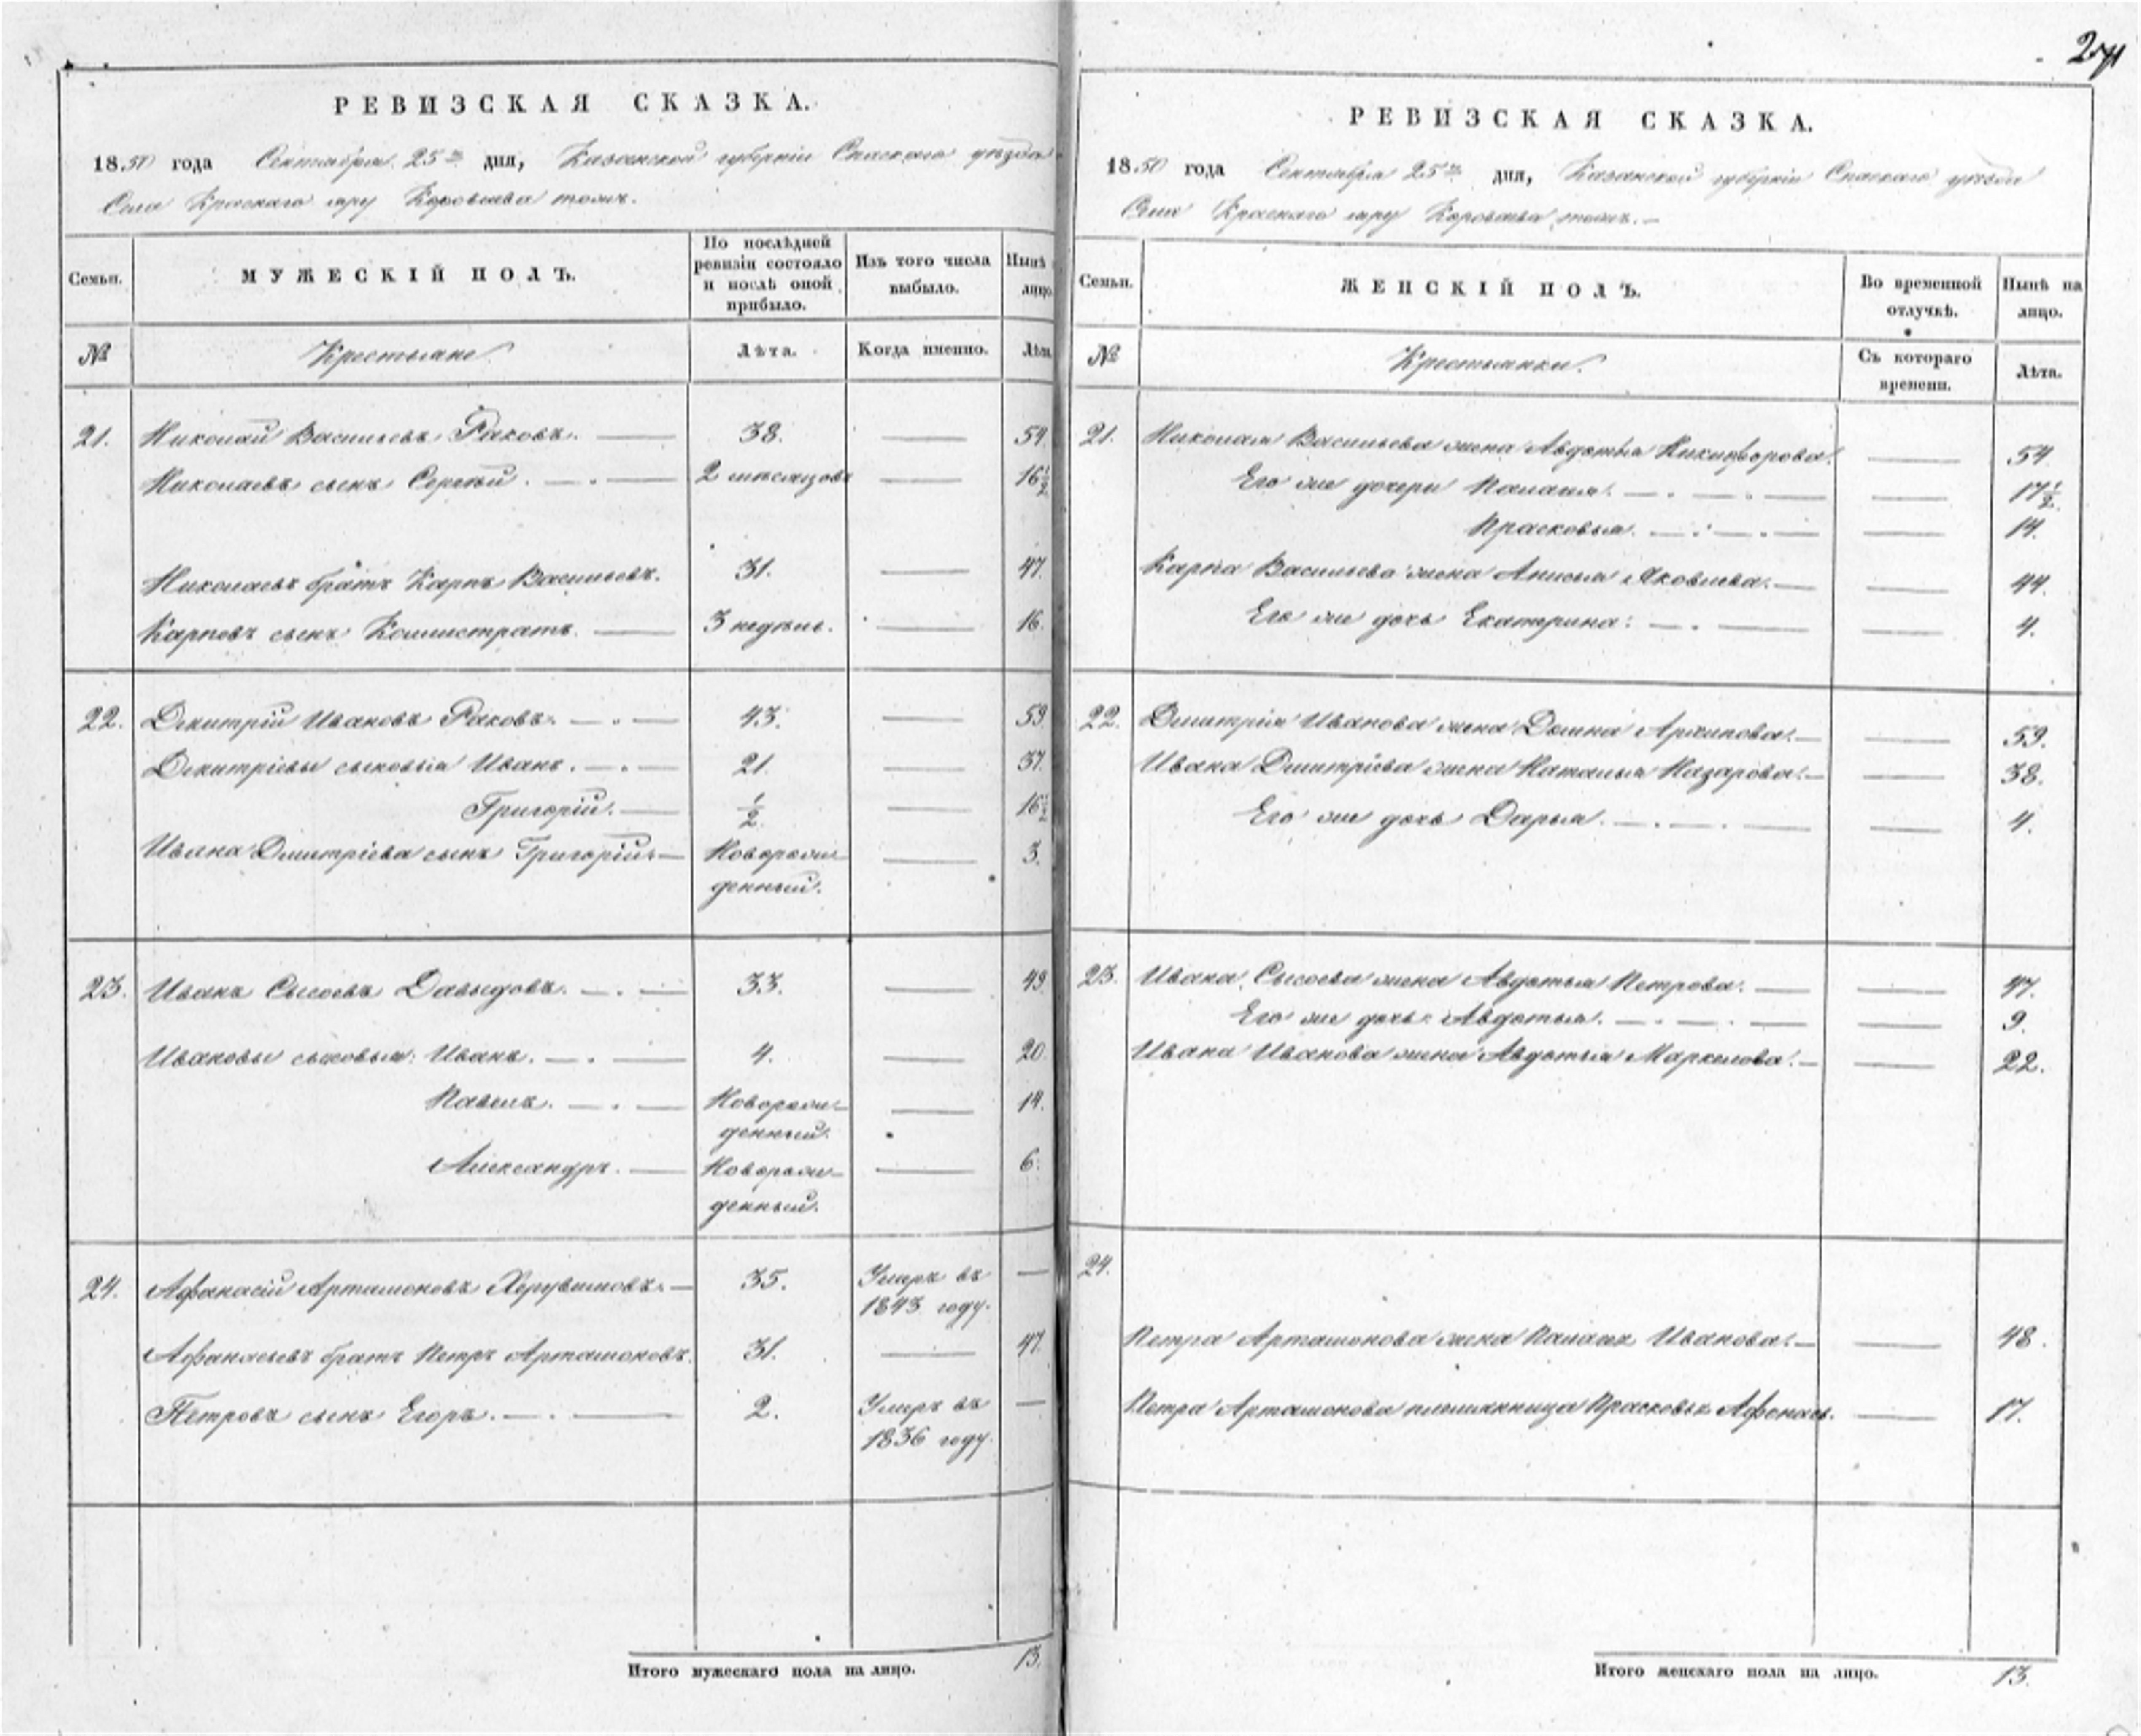 271
РЕВИЗСКАЯ СКАЗКА.
1850 года Сентября 25го дня, Казанской губерніи Спаскаго уѣзда
Села Краснаго яру Коровьева тожъ.
Семьи. МУЖЕСКІЙ ПОЛЪ. По послѣдней ревизіи состояло и послѣ оной прибыло. Изъ того числа выбыло. Нынѣ лицо
№ Крестьяне. Лѣта. Когда именно. Лѣта
21. Николай Васильевъ Раковъ. 38. 54.
Николаевъ сынъ Сергѣй. 2 мѣсяцовъ 16½
Николаевъ братъ Карпъ Васильевъ. 31. 47.
Карповъ сынъ Каллистратъ. 3 недѣль. 16.
22. Дмитрій Ивановъ Раковъ. 43. 59.
Дмитріевы сыновья Иванъ. 21. 37.
Григорій. ½ 16½
Ивана Дмитріева сынъ Григорій. Новорож- 3.
денный.
23. Иванъ Сысоевъ Давыдовъ. 33. 49.
Ивановы сыновья: Иванъ. 4. 20.
Павелъ. Новорож- 14.
денный.
Александръ. Новорож- 6.
денный.
24. Афанасій Артамоновъ Херувимовъ. 35. Умеръ въ
1843 году.
Афанасьевъ братъ Петръ Артамоновъ. 31. 47.
Петровъ сынъ Егоръ. 2. Умеръ въ
1836 году.
Итого мужескаго пола на лицо. 13.
РЕВИЗСКАЯ СКАЗКА.
1850 года Сентября 25го дня, Казанской губерніи Спаскаго уѣзда
Села Краснаго яру Коровьева тожъ.
Семьи. ЖЕНСКІЙ ПОЛЪ. Во временной отлучкѣ. Нынѣ на лицо.
№ Крестьянки. Съ котораго времени. Лѣта.
21. Николая Васильева жена Авдотья Никифорова. 54.
Его же дочери Палагея. 17½
Прасковья. 14.
Карпа Васильева жена Анисья Яковлева. 44.
Его же дочь Екатерина. 4.
22. Дмитрія Иванова жена Домна Архипова. 59.
Ивана Дмитріева жена Наталья Назарова. 38.
Его же дочь Дарья. 4.
23. Ивана Сысоева жена Авдотья Петрова. 47.
Его же дочь Авдотья. 9.
Ивана Иванова жена Авдотья Маркелова. 22.
24.
Петра Артамонова жена Палагея Иванова. 48.
Петра Артамонова племянница Прасковья Афонась. 17.
Итого женскаго пола на лицо. 13.